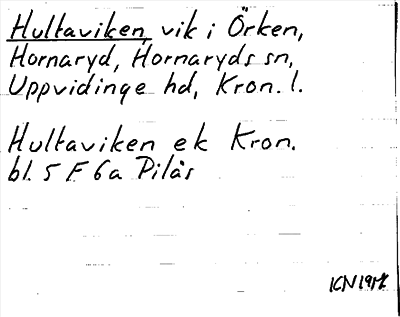 Hultaviken, vik i Örken,
Hornaryd, Hornaryds sn,
Uppvidinge hd, Kron. l.
Hultaviken ek Kron.
bl. 5 F 6a Pilås